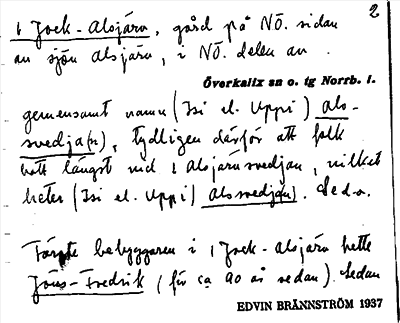 2
1 Jock-Alsjärv, gård på NÖ. sidan
av sjön Alsjärv, i NÖ. delen av
Överkalix sn o. tg Norrb. l.
gemensamt namn (Isi el. Uppi) als-
svedja(n), tydligen därför att folk
bott längst vid 1 Alsjärvsvedjan, vilket
heter (Isi el. Uppi) alssvedja(n). Se d.o.
Förste bebyggaren i 1 Jock-Alsjärv hette
Jöns-Fredrik (för ca 90 år sedan). Sedan
EDVIN BRÄNNSTRÖM 1937